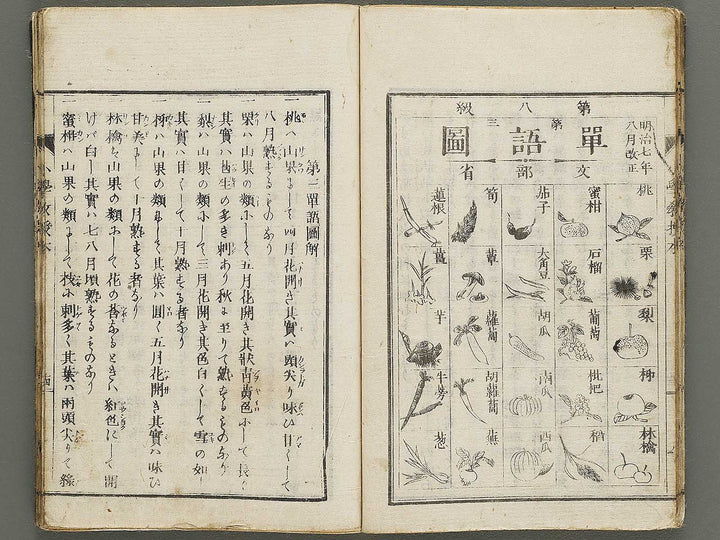 第八級
單語圖
第三
文部省
明治七年
八月改正
桃
栗
梨
柿
林檎
蜜柑
石榴
葡萄
枇杷
茄子
大角豆
胡瓜
南瓜
西瓜
筍
蕈
蘿蔔
胡蘿蔔
蕪
蓮根
薑
芋
牛蒡
葱
第三單語圖解
一桃ハ山果にして四月花開き其實ハ頭尖り味ひ甘くして
八月熟するものなり
一栗ハ山果の類にして五月花開き其狀青黄色にして長く
其實ハ皆生の多き刺あり秋に至りて熟するものなり
一梨ハ山果の類にして三月花開き其色白くして雪の如し
其實ハ甘くして十月熟する者なり
一柿ハ山果の類にして其葉ハ圓く五月花開き其實ハ味ひ
甘美にして十月熟する者なり
一林檎ハ山果の類にして花の莟なるときハ紅色にして開
けバ白し其實ハ七八月頃熟するものなり
一蜜柑ハ山果の類にして枝に刺多く其葉ハ兩頭尖りて緑
小學教授本
十四